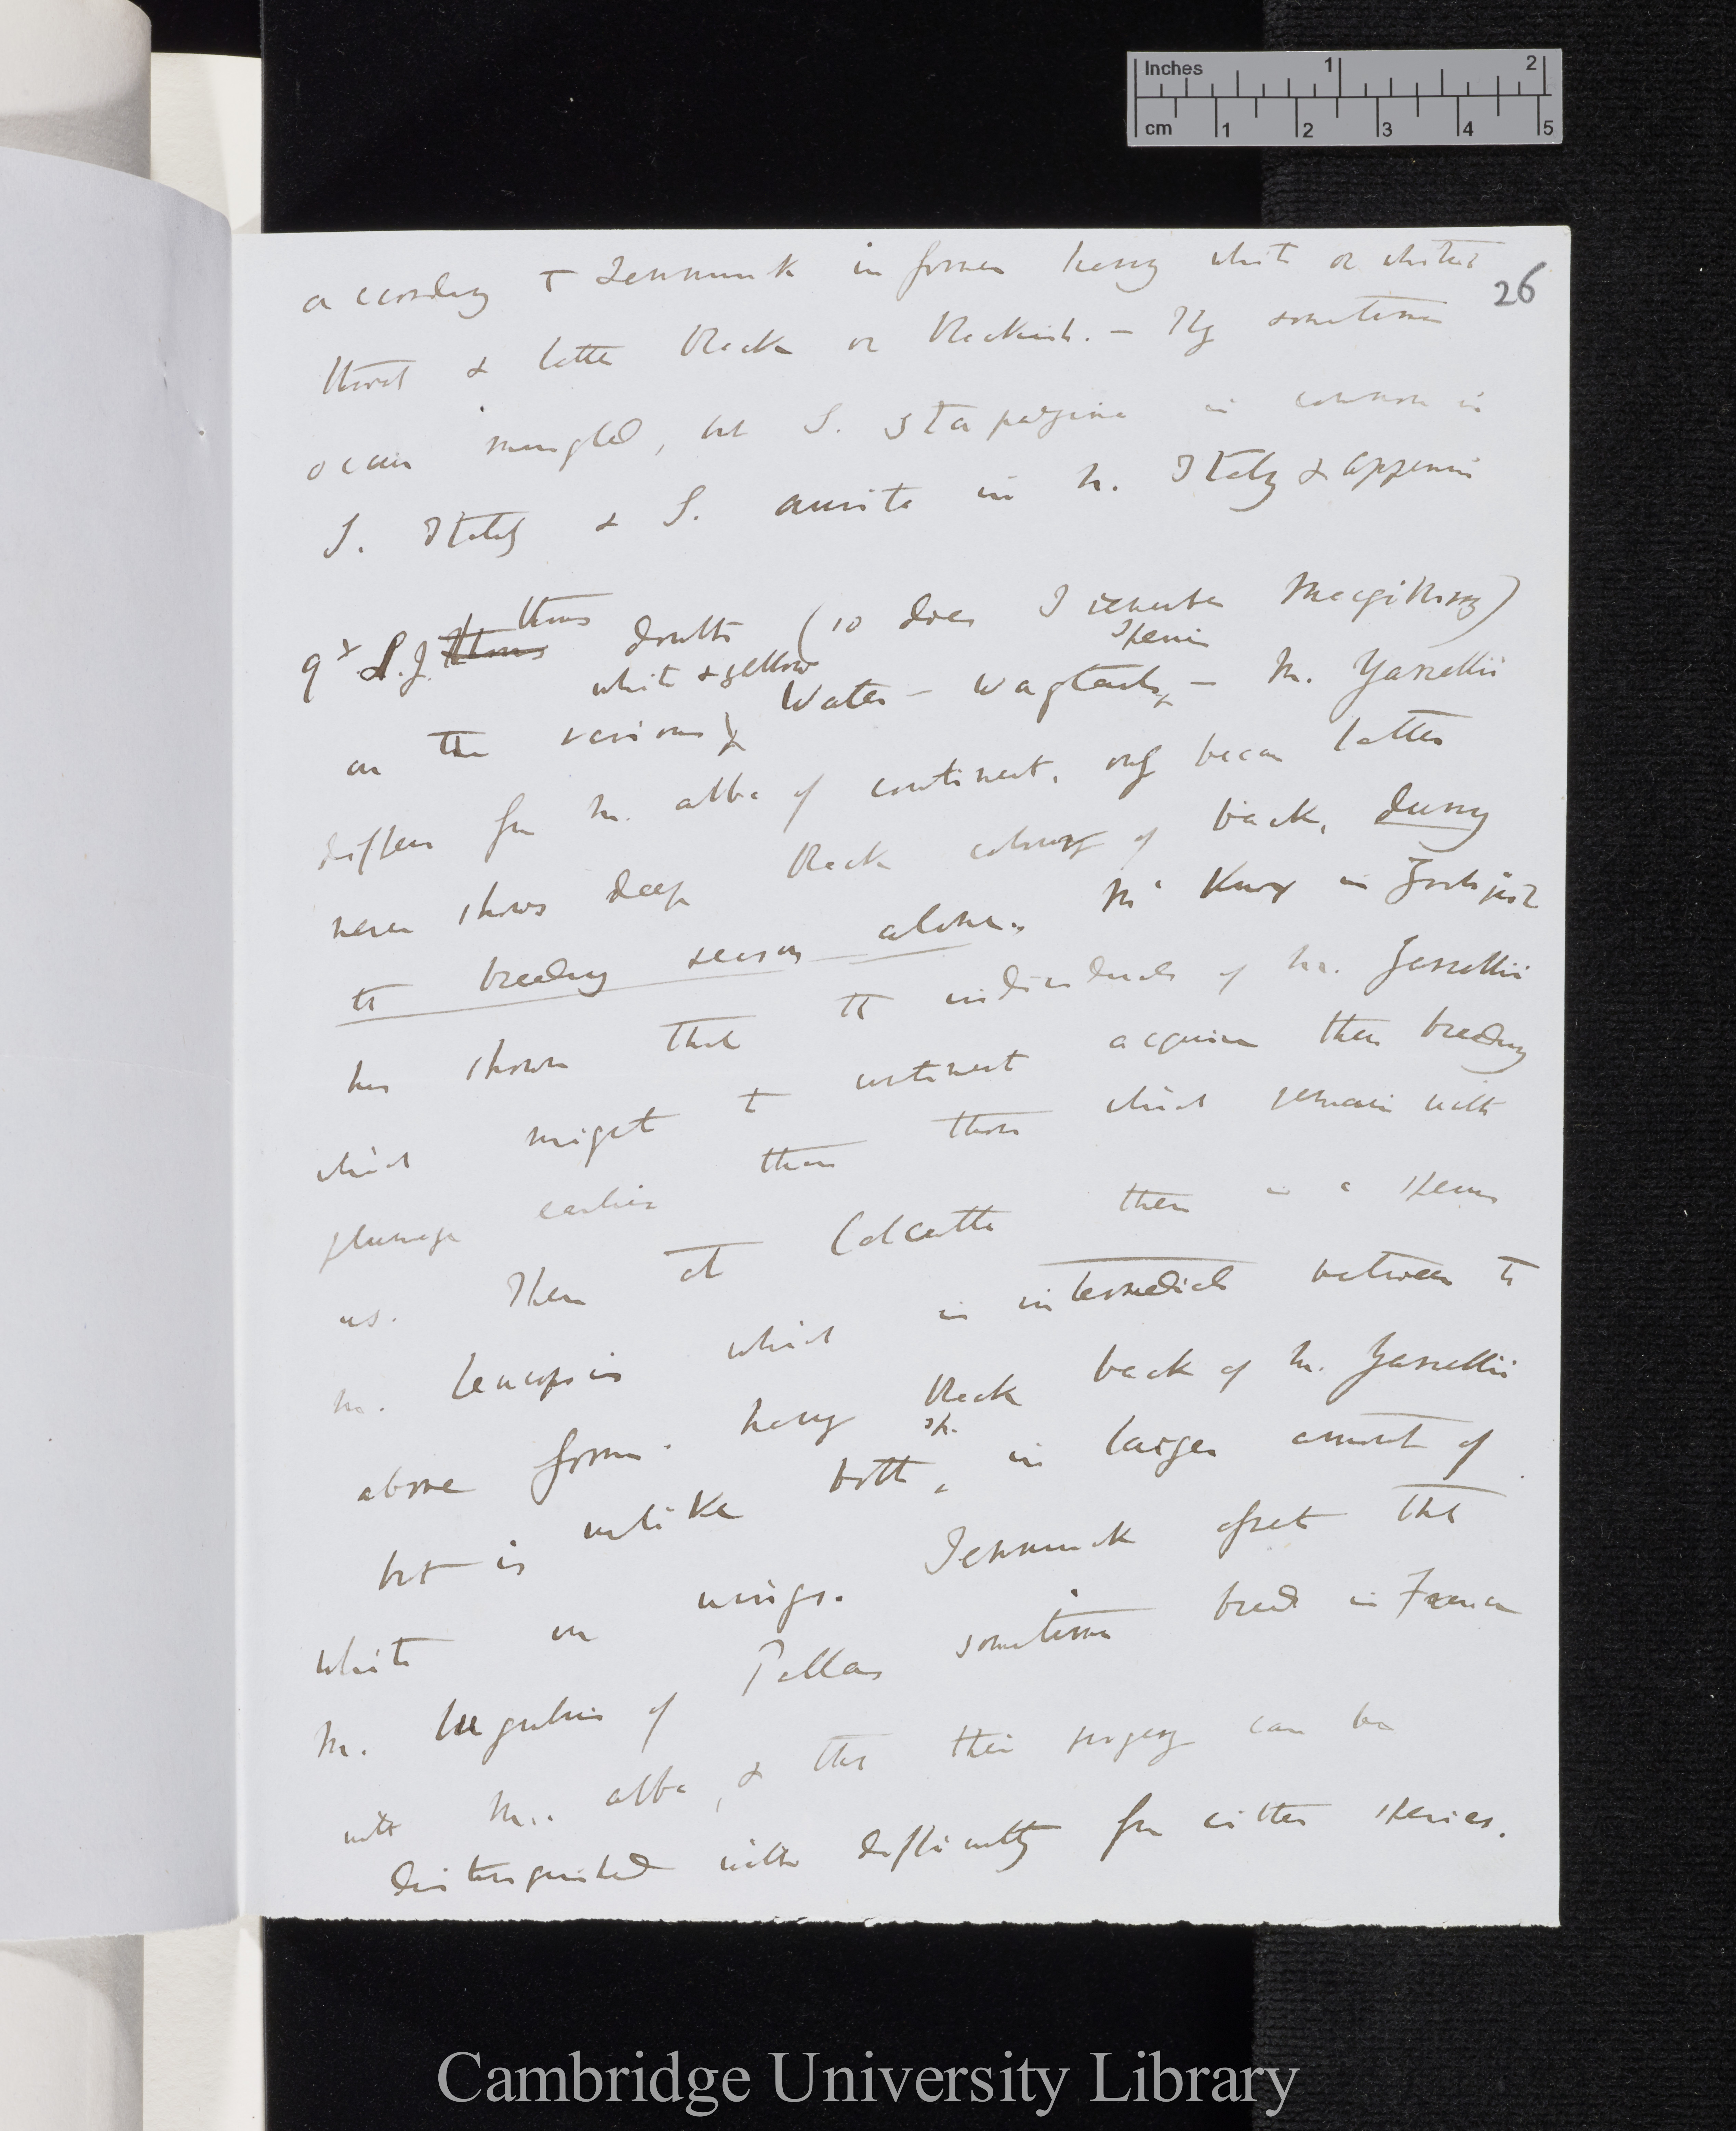 Inches 1 2
cm 1 2 3 4 5
26
according to Temminck in former having white or whitish
throat & latter black or blackish. — They sometimes
occur mingled, but S. stapazina is common in
S. Italy & S. aurita in N. Italy & Appenines
thus doubts (so does I remember Macgillivray)
white & yellow species
on the various Water-wagtails — M. Yarrellii
differs from M. alba of continent, only because latter
never shows deep black colouring of back, during
the breeding season alone. Mr Knox in
has shown that the individuals of M. Yarrellii
which migrate to continent acquire their breeding
plumage earlier than those which remain with
us. Then at Calcutta there is a species
M. leucopsis which is intermediate between the
above forms. having black back of M. Yarrellii
sp.
but is unlike both, in larger amount of
white on wings. Temminck that
M. lugubris of Pallas sometimes breeds in France
with M. alba, & that their progeny can be
distinguished with difficulty from either species.
Cambridge University Library